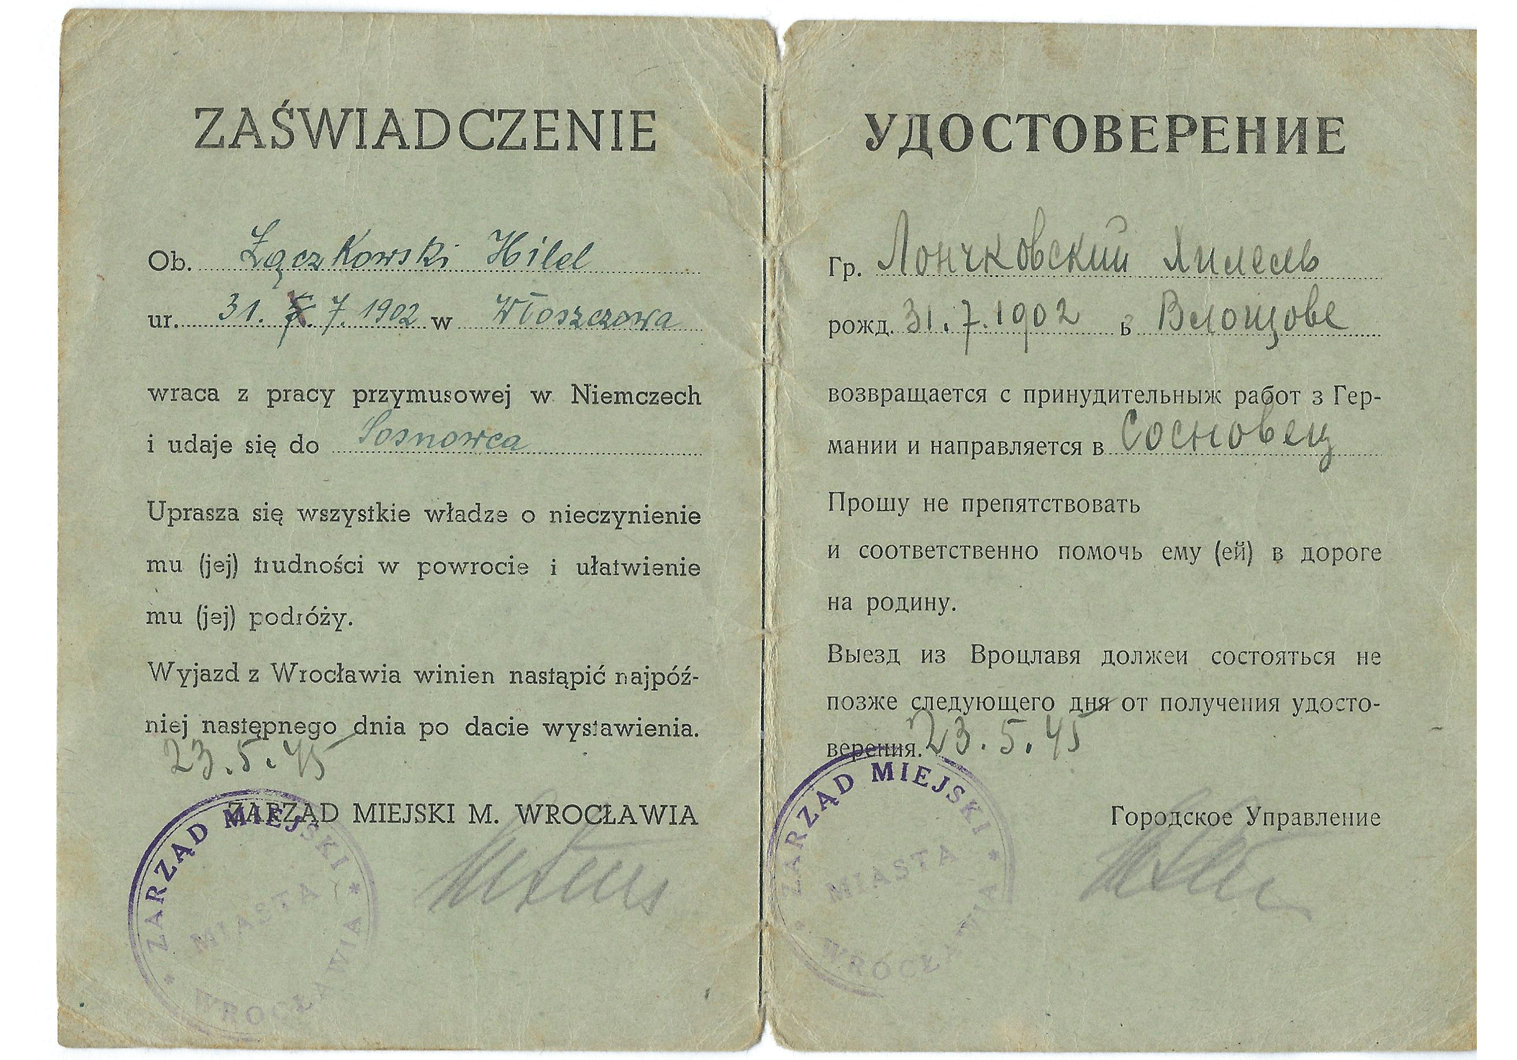 ZAŚWIADCZENIE
Ob. Łączkowski Hilel
ur. 31. 7. 1902 w Włoszczowa
wraca z pracy przymusowej w Niemczech
i udaje się do Sosnowca
Uprasza się wszystkie władze o nieczynienie
mu (jej) trudności w powrocie i ułatwienie
mu (jej) podróży.
Wyjazd z Wrocławia winien nastąpić najpóź-
niej następnego dnia po dacie wystawienia.
23.5.45
ZARZĄD MIEJSKI M. WROCŁAWIA
ZARZĄD MIEJSKI
MIASTA
* WROCŁAWIA *
УДОСТОВЕРЕНИЕ
Гр. Лончковский Хилель
рожд. 31.7.1902 в Влощове
возвращается с принудительныж работ з Гер-
мании и направляется в Сосновец
Прошу не препятствовать
и соответственно помочь ему (ей) в дороге
на родину.
Выезд из Вроцлавя должеи состояться не
позже следующего дня от получения удосто-
верения. 23.5.45
Городское Управление
ZARZĄD MIEJSKI
MIASTA
* WROCŁAWIA *